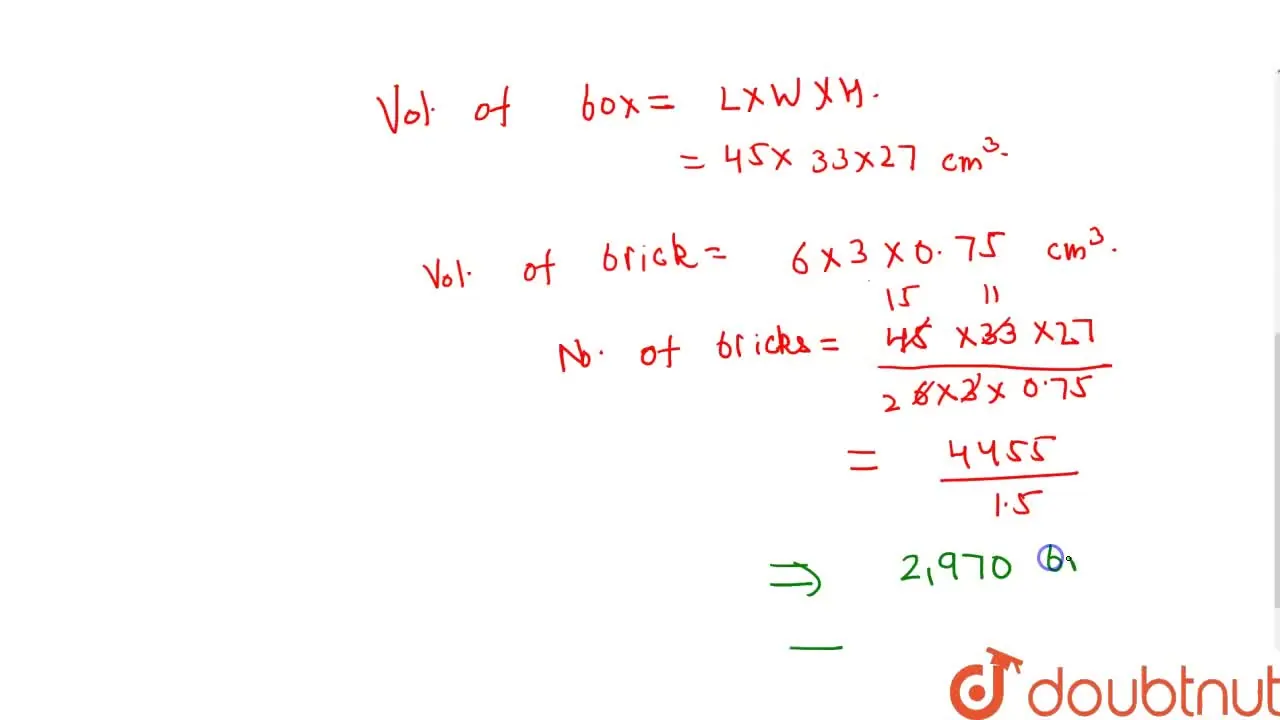 Vol. of box = L×W×H.
= 45× 33×27 cm³.
Vol. of brick = 6×3×0.75 cm³.
15 11
No. of bricks = 45 ×33 ×27
2 6×3× 0.75
= 4455
1.5
⇒ 2,970
doubtnut